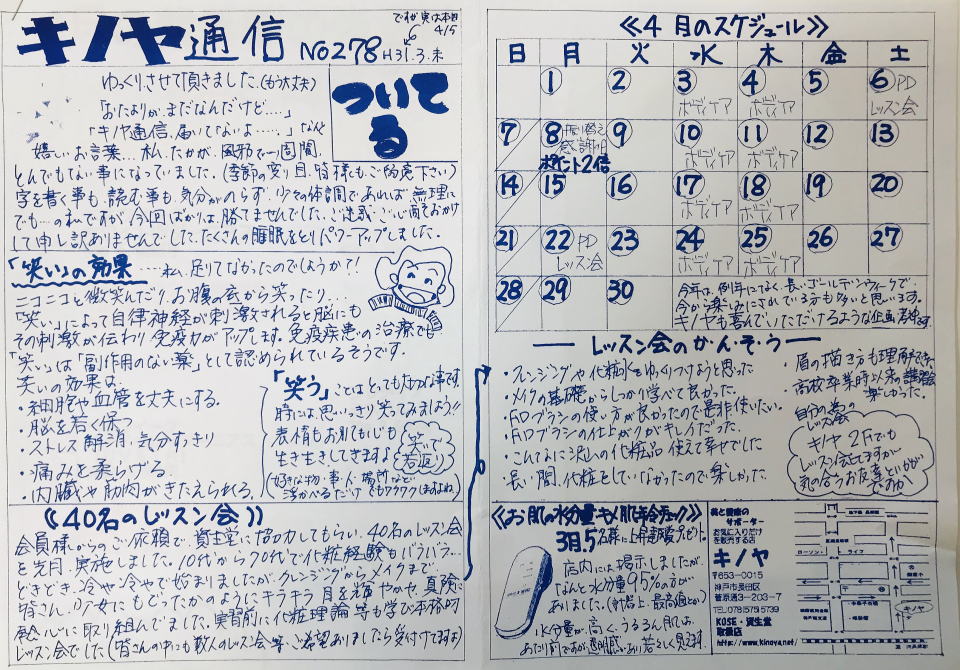 キノヤ通信 NO278 H31.3.末
ですが実は本日
4/5
ゆっくりさせて頂きました
「おたよりが、まだなんだけど…」
「キノヤ通信、届いてないよ……」など
嬉しいお言葉…私、たかが、風邪で一週間、
とんでもない事になっていました。(季節の変り目、皆様も、ご留意下さい)
字を書く事も、読む事も、気分がのらず、少々の体調であれば、無理に
でも…の私ですが、今回ばかりは、勝てませんでした。ご迷惑・ご心配をおかけ
して申し訳ありませんでした。たくさんの睡眠をとりパワーアップしました。
ついて
る
「笑い」の効果 ……私、足りてなかったのでしょうか?!
ニコニコと微笑んだり、お腹の底から笑ったり…
「笑い」によって自律神経が刺激されると脳にも
その刺激が伝わり免疫力がアップします。免疫疾患の治療でも
「笑い」は「副作用のない薬」として認められているそうです。
笑いの効果は、
・細胞や血管を丈夫にする。
・脳を若く保つ
・ストレス解消、気分すっきり
・痛みを柔らげる
・内臓や筋肉がきたえられる。
「笑う」ことは、とっても大切な事です。
時には、思いっきり笑ってみましょう!!
表情もお肌も心も
生き生きしてきますよ
(好きな物・事・人・場所など
浮かべるだけでもワクワクしますよね)
笑いで
若返り
《40名のレッスン会》
会員様からのご依頼で、資生堂に協力してもらい、40名のレッスン会
を先月、実施しました。10代から70代で化粧経験もバラバラ…
どきどき、冷や冷やで始まりましたが、クレンジングからメイクまで、
皆さん、少女にもどったかのようにキラキラ目を輝やかせ、真険に
熱心に取り組んでました。実習前に化粧理論等も学び本格的
レッスン会でした(皆さんの中にも数人のレッスン会等、ご希望ありましたら受付けてます)
《4月のスケジュール》
日 月 火 水 木 金 土
1 2 3 4 5 6 PD
ボディケア ボディケア レッスン会
7 8 振り替え 9 10 11 12 13
感謝日
ポイント2倍 ボディケア ボディケア
14 15 16 17 18 19 20
ボディケア ボディケア
21 22 PD 23 24 25 26 27
レッスン会 ボディケア ボディケア
28 29 30
今年は、例年になく、長いゴールデンウィークで、
今から楽しみにされている方も多いと思います。
キノヤも喜んでいただけるような企画考中です。
レッスン会のかんそう
・クレンジングや化粧水をゆっくりつけようと思った
・メイクの基礎からしっかり学べて良かった。
・FDブラシの使い方が良かったので是非使いたい。
・FDブラシの仕上がりがキレイだった。
・こんなに沢山の化粧品使えて幸せでした
・長い間、化粧をしていなかったので楽しかった。
・眉の描き方も理解できた
・高校卒業時以来の講習会
楽しかった。
自分の為の
レッスン会
キノヤ2Fでも
レッスン会してますが、
気の合うお友達といかが
ですか
《お肌の水分量・キメ・肌年令チェック》
3月、5名様に上昇率賞プレゼント
店内には掲示しましたが、
なんと水分量95%の方が
ありました。(計器上、最高値とか)
水分量が、高く、うるうる肌は、
あたり前ですが、透明感があり若々しく見えます。
美と健康の
サポーター
お気に入りだけ
を販売する店
キノヤ
〒653-0015
神戸市長田区
菅原通3-203-7
TEL078 575 5739
KOSE・資生堂
取扱店
http://www.kinoya.net/
ローソン
ライフ
キノヤ